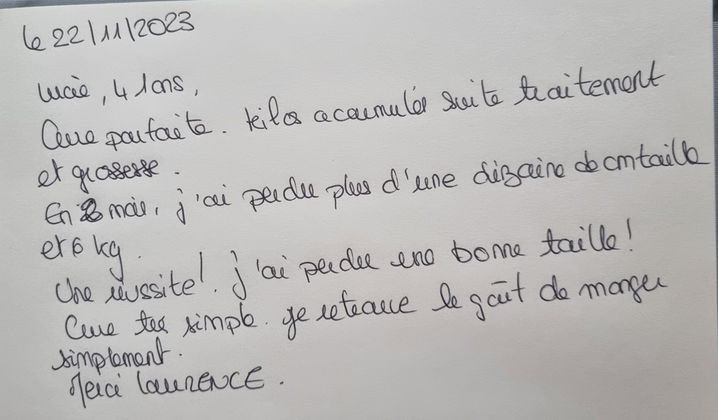 le 22/11/2023
Lucie, 41ans,
Cure parfaite. kilos accumulés suite traitement
et grossesse.
En 2 mois, j'ai perdu plus d'une dizaine de cm taille
et 6 kg.
Une réussite! j'ai perdu une bonne taille!
Cure très simple. je retrouve le goût de manger
simplement.
Merci LAURENCE.